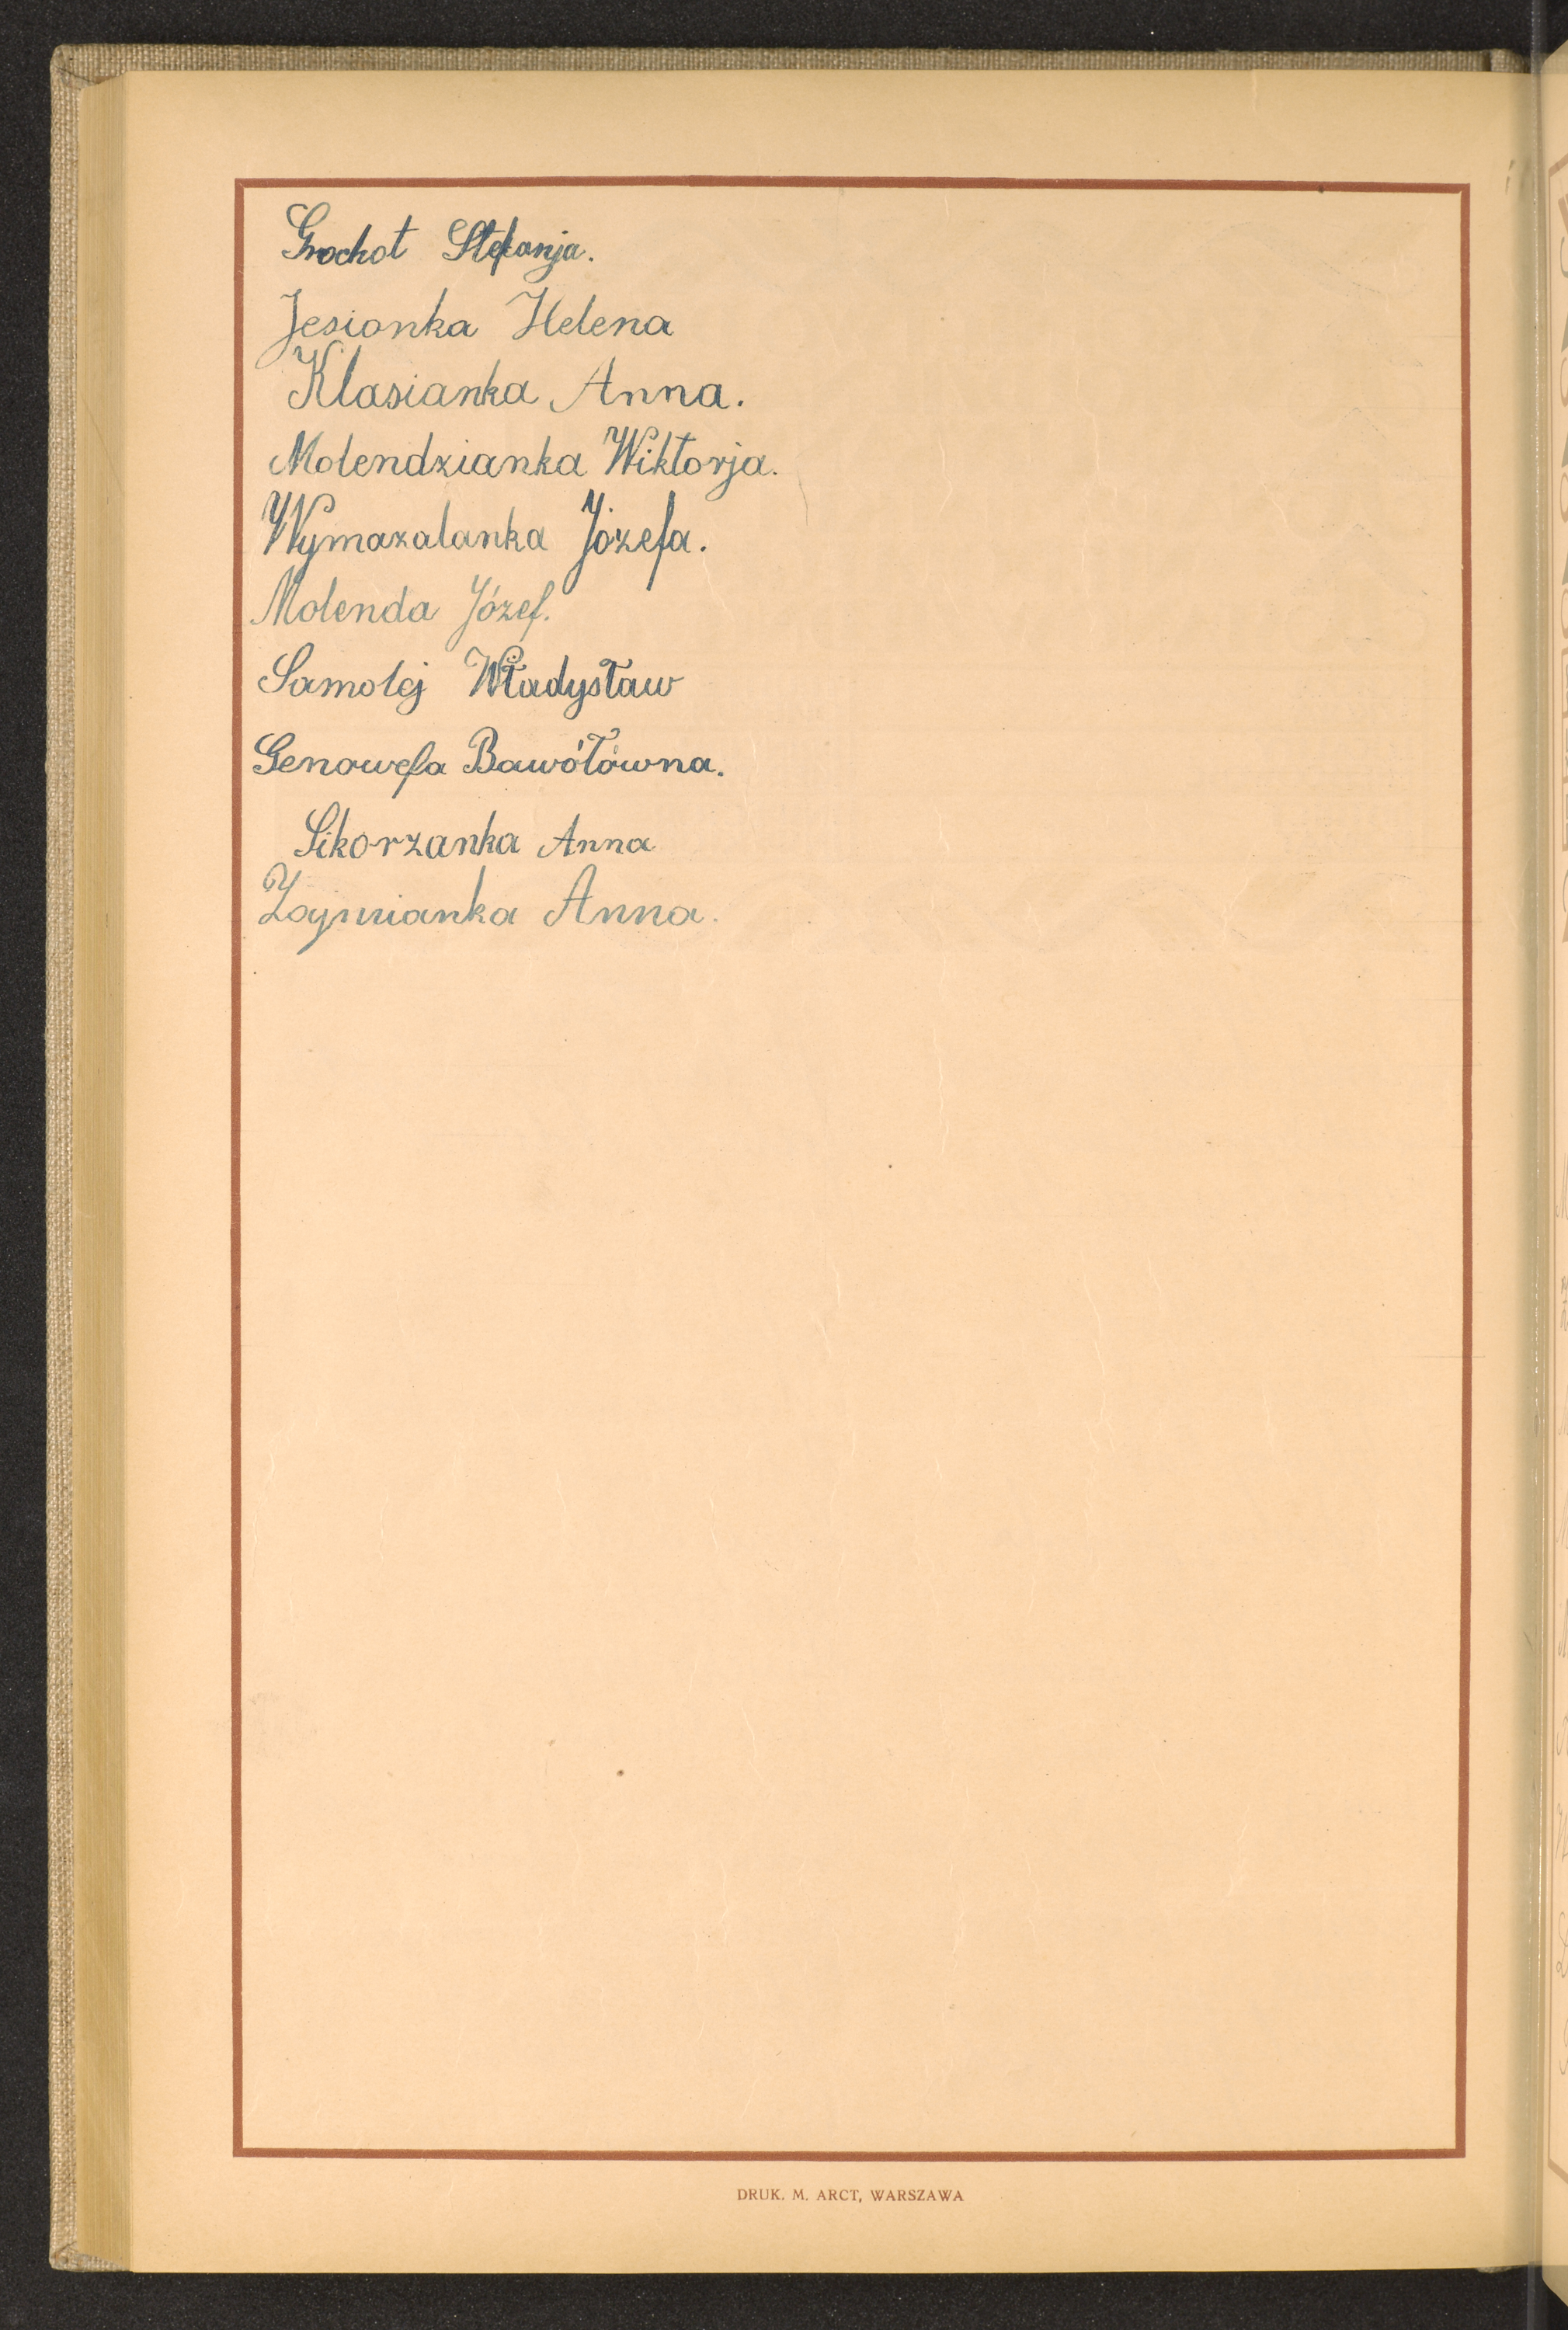 Grochot Stefanja.
Jesionka Helena
Klasianka Anna.
Molendzianka Wiktorja.
Wymazalanka Józefa.
Molenda Józef.
Samolej Władysław
Genowefa Bawółówna.
Sikorzanka Anna
Anna.
DRUK. M. ARCT, WARSZAWA